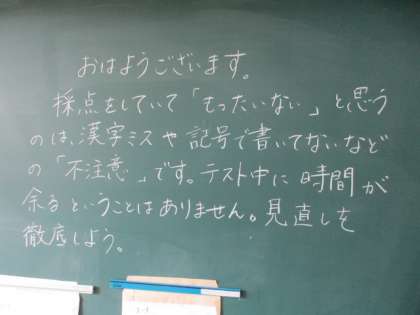 おはようございます。
採点をしていて「もったいない」と思う
のは、漢字ミスや記号で書いてないなど
の「不注意」です。テスト中に時間が
余るということはありません。見直しを
徹底しよう。